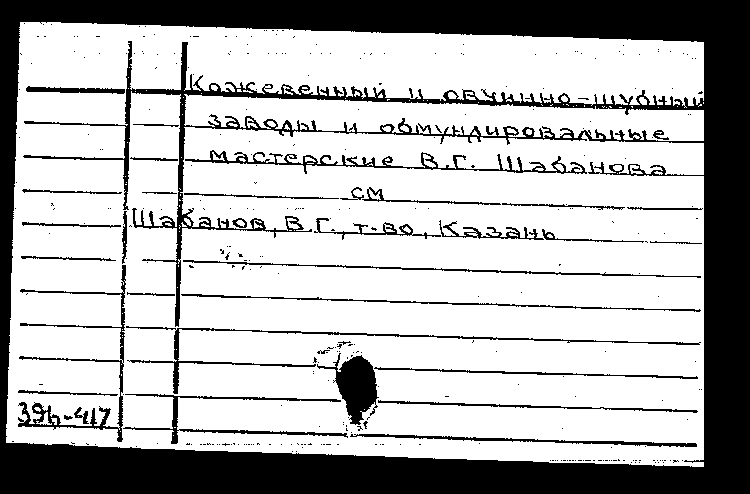 Кожевенный и овчинно-шубный
заводы и обмундировальные
мастерские В.Г. Шабанова
см
Шабанов, В.Г., т-во, Казань